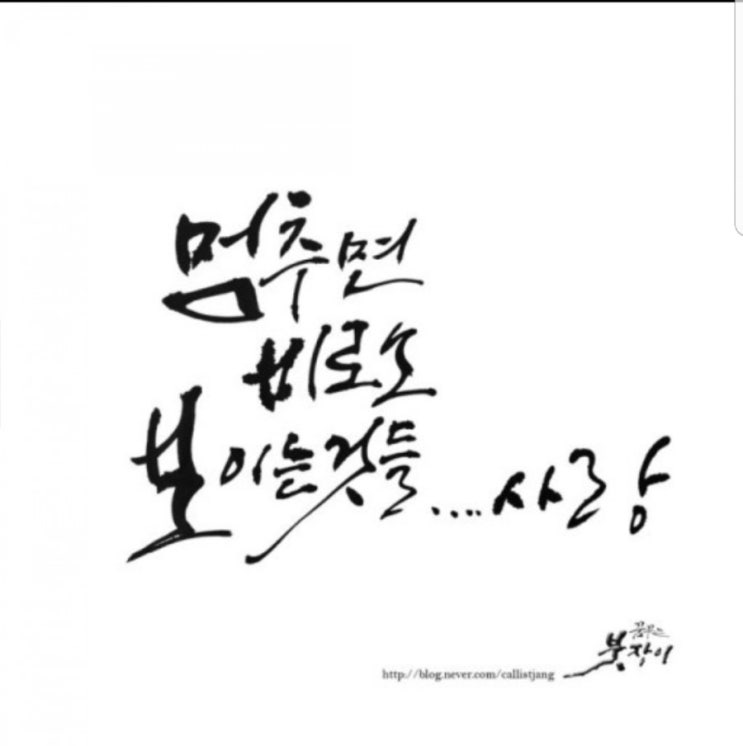 멈추면
비로소
보이는것들....사랑
꿈꾸는
붓장이
http://blog.never.com/callistjang